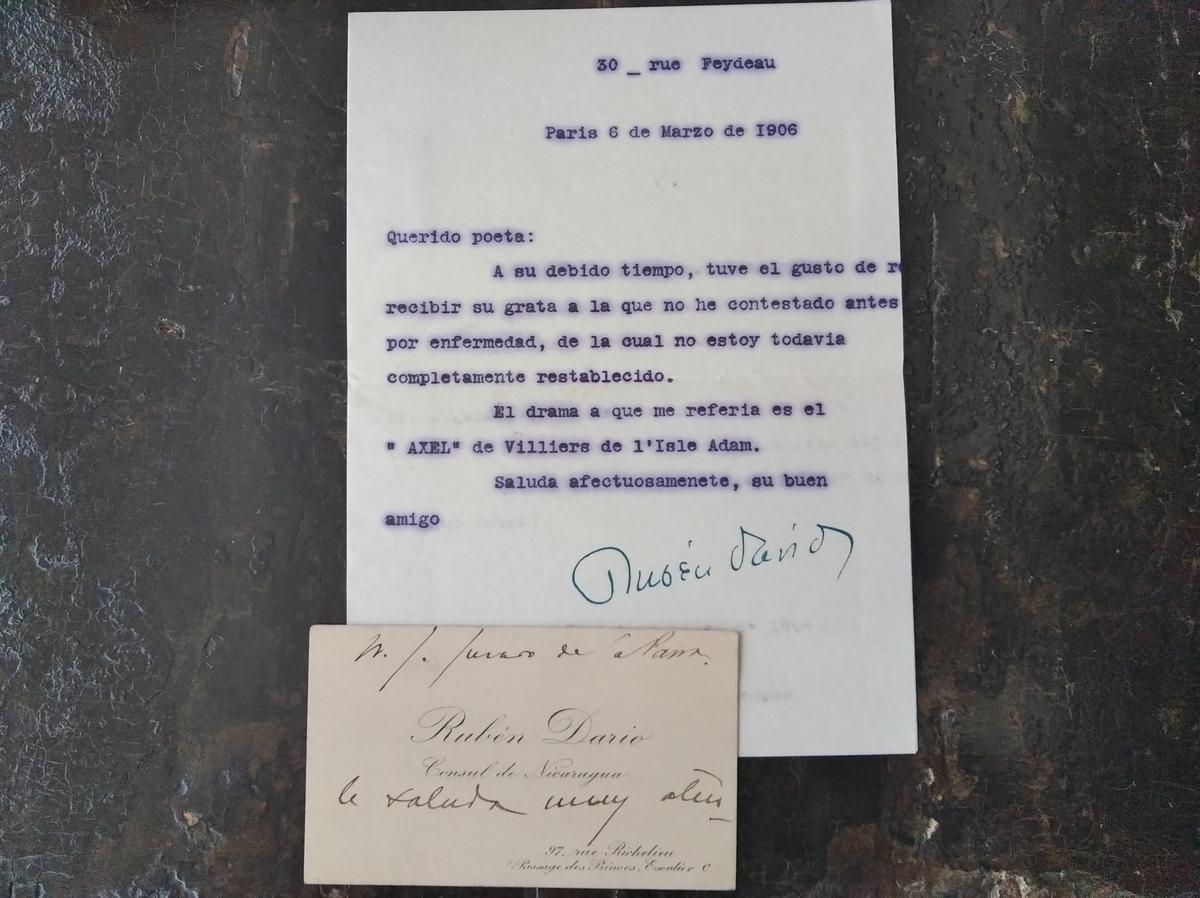 30 _ rue Feydeau
Paris 6 de Marzo de I906
Querido poeta:
A su debido tiempo, tuve el gusto de re
recibir su grata a la que no he contestado antes
por enfermedad, de la cual no estoy todavia
completamente restablecido.
El drama a que me referia es el
" AXEL" de Villiers de l'Isle Adam.
Saluda afectuosamenete, su buen
amigo
Rubén Darío
de la Parra.
Rubén Dario
Consul de Nicaragua
le saluda muy
97, rue Richelieu
Passage des Princes, Escalier C